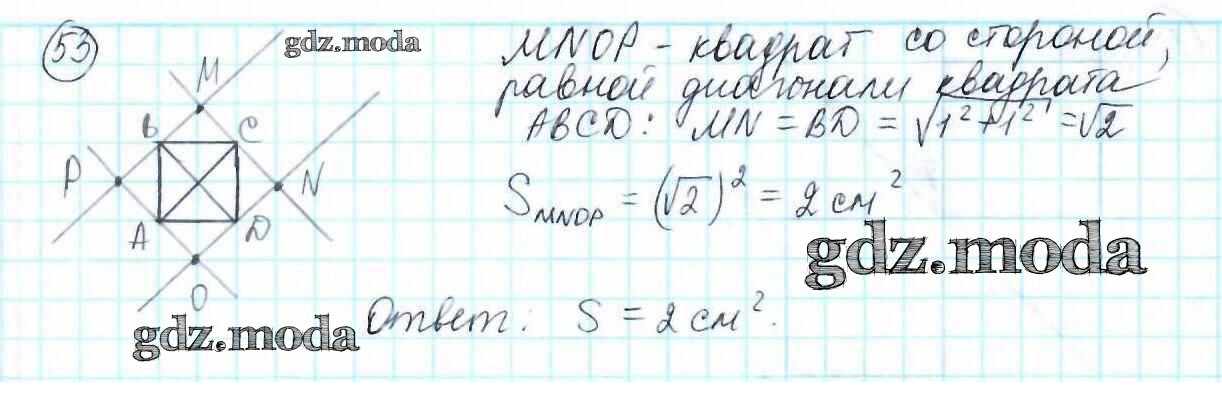 53
gdz.moda
MNOP - квадрат со стороной,
равной диагонали квадрата
ABCD: MN = BD = √1²+1² = √2
S MNOP = (√2)² = 2 см²
gdz.moda
M
B
C
P
N
A
D
O
gdz.moda
Ответ: S = 2 см².